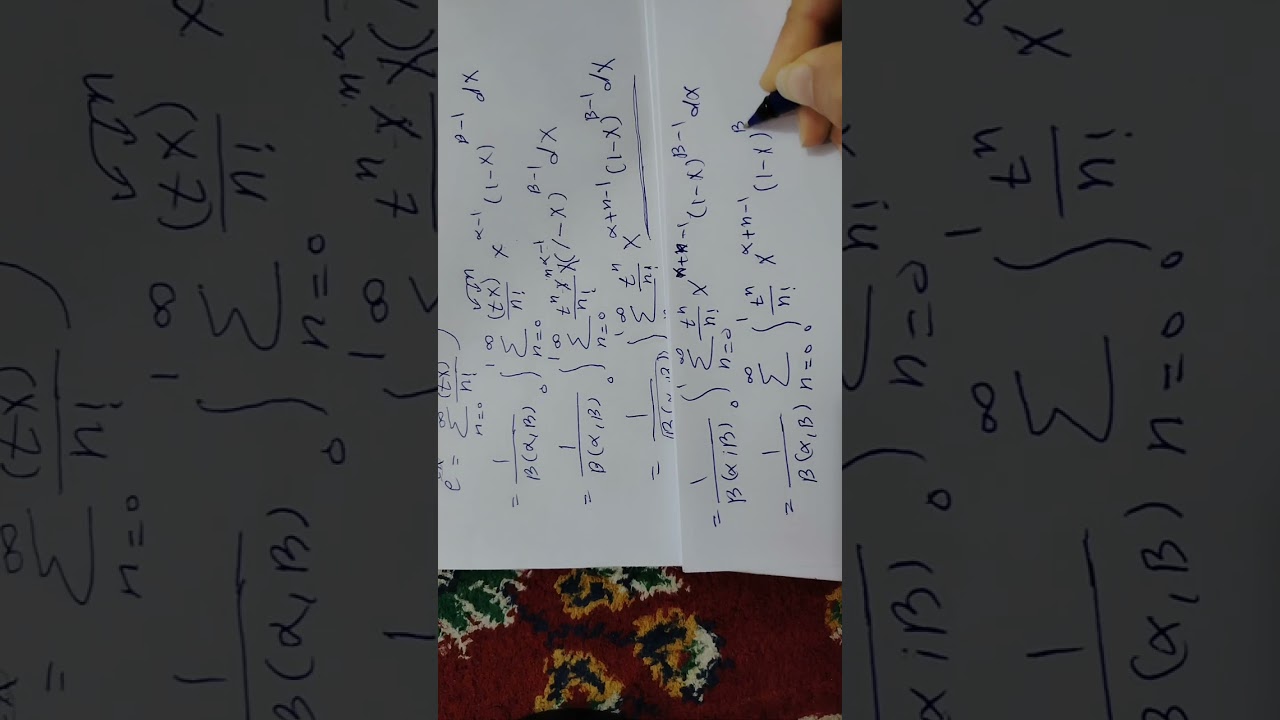 e^{tx} = \sum_{n=0}^{\infty} \frac{(xt)^n}{n!} )
= \frac{1}{B(α,B)} \int_0^1 \sum_{n=0}^{\infty} \frac{(xt)^n}{n!} x^{α-1} (1-x)^{B-1} dx
= \frac{1}{B(α,B)} \int_0^1 \sum_{n=0}^{\infty} \frac{t^n x^n x^{α-1}}{n!} (1-x)^{B-1} dx
= \frac{1}{B(α,B)} \int \sum^{\infty} \frac{t^n}{n!} x^{α+n-1} (1-x)^{B-1} dx
= \frac{1}{B(α,B)} \int_0^1 \sum_{n=0}^{\infty} \frac{t^n}{n!} x^{α+n-1} (1-x)^{B-1} dx
= \frac{1}{B(α,B)} \sum_{n=0}^{\infty} \int_0^1 \frac{t^n}{n!} x^{α+n-1} (1-x)^{B